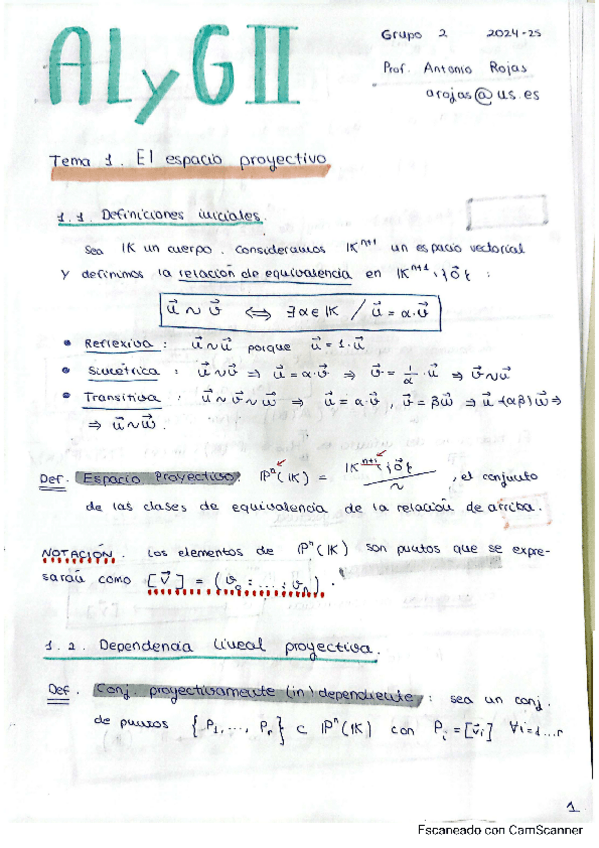 ALyGII
Grupo 2 2024-25
Prof. Antonio Rojas
arojas@us.es
Tema 1. El espacio proyectivo
1.1. Definiciones iniciales.
Sea IK un cuerpo. Consideramos IKⁿ⁺¹ un espacio vectorial
y definimos la relación de equivalencia en IKⁿ⁺¹ \ {0⃗} :
u⃗ ~ v⃗ ⟺ ∃α ∈ IK / u⃗ = α·v⃗
• Reflexiva : u⃗ ~ u⃗ porque u⃗ = 1·u⃗
• Simétrica : u⃗ ~ v⃗ ⇒ u⃗ = α·v⃗ ⇒ v⃗ = 1/α · u⃗ ⇒ v⃗ ~ u⃗
• Transitiva : u⃗ ~ v⃗ ~ w⃗ ⇒ u⃗ = α·v⃗, v⃗ = βw⃗ ⇒ u⃗ = (αβ)w⃗ ⇒
⇒ u⃗ ~ w⃗.
Def. Espacio Proyectivo: IPⁿ(IK) = IKⁿ⁺¹ \ {0⃗} / ~ , el conjunto
de las clases de equivalencia de la relación de arriba.
NOTACIÓN. Los elementos de IPⁿ(IK) son puntos que se expre-
sarán como [v⃗] = (v₀ : ... : vₙ).
1.2. Dependencia lineal proyectiva.
Def. Conj. proyectivamente (in)dependiente : sea un conj.
de puntos {P₁, ..., Pᵣ} ⊂ IPⁿ(IK) con Pᵢ = [v⃗ᵢ] ∀i=1...r
1
Escaneado con CamScanner